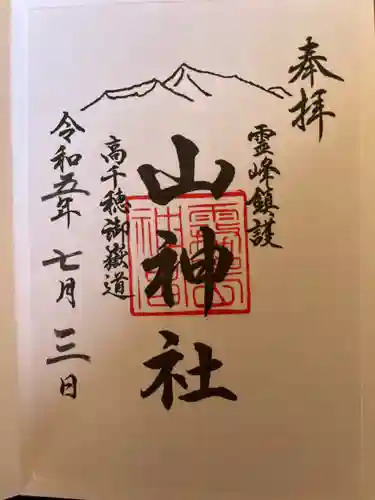 奉拝
霊峰鎮護
山神社
高千穂御嶽道
令和五年 七月 三日